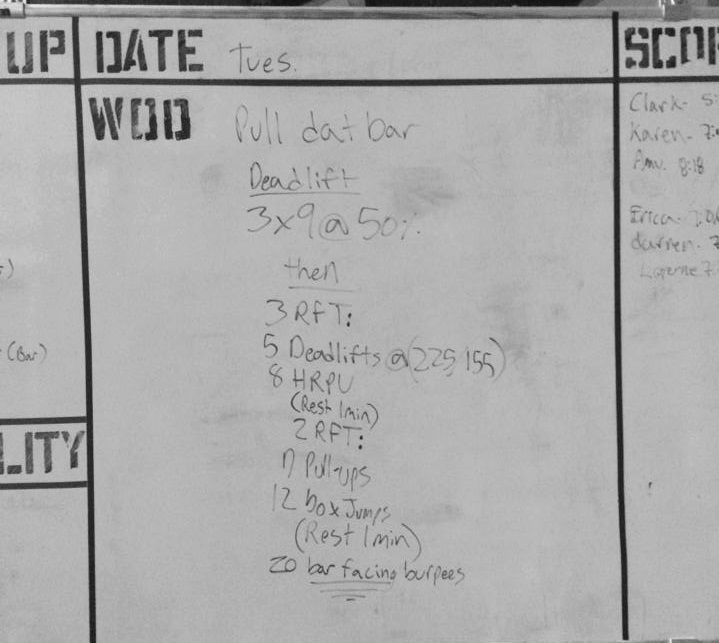 UP
DATE Tues.
SCOR
WOD Pull dat bar
Deadlift
3x9@50%
then
3 RFT:
5 Deadlifts @(225, 155)
8 HRPU
(Rest 1min)
2 RFT:
7 Pull-ups
12 box Jumps
(Rest 1min)
20 bar facing burpees
(Bar)
LITY
Clark-
Karen-
Amy. 8:18
Erica-
darren-